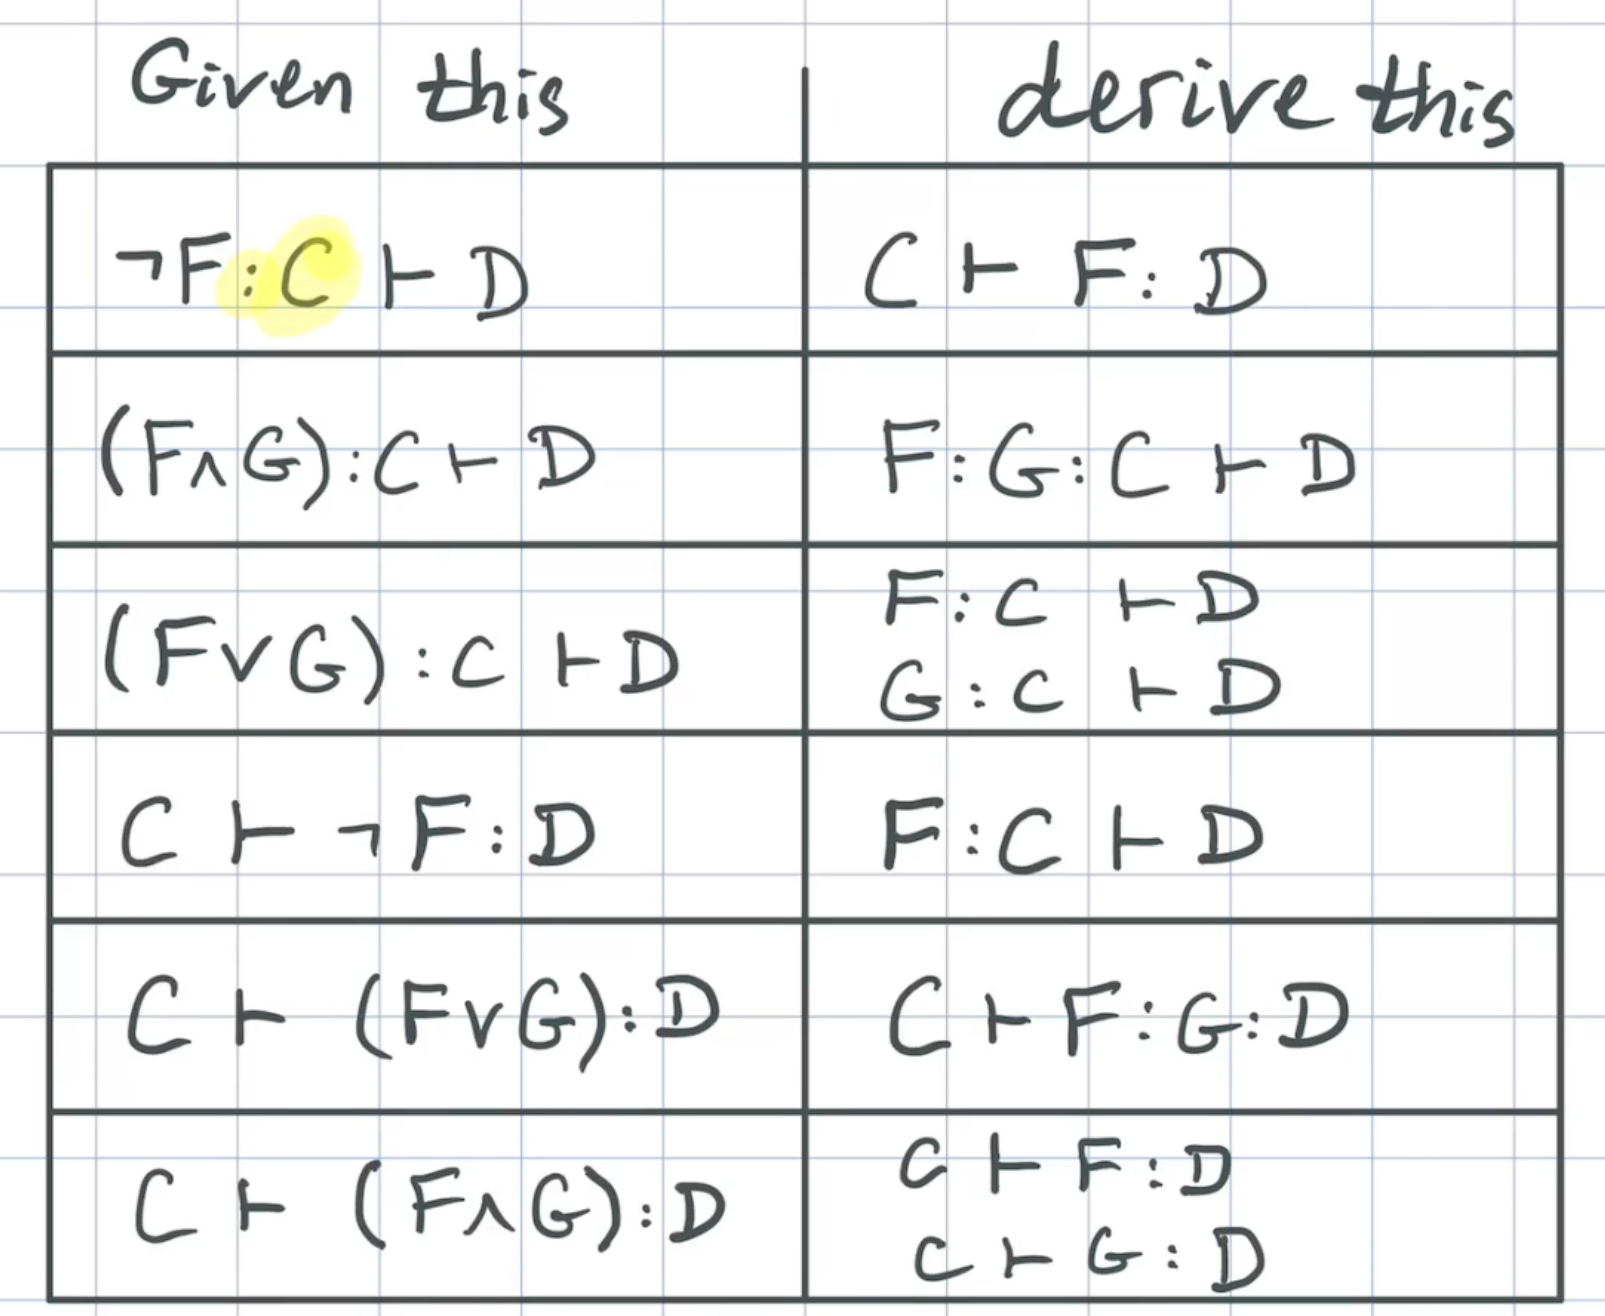 Given this derive this
¬F:C ⊢ D C ⊢ F:D
(F∧G):C ⊢ D F:G:C ⊢ D
(F∨G):C ⊢ D F:C ⊢ D
G:C ⊢ D
C ⊢ ¬F:D F:C ⊢ D
C ⊢ (F∨G):D C ⊢ F:G:D
C ⊢ (F∧G):D C ⊢ F:D
C ⊢ G:D